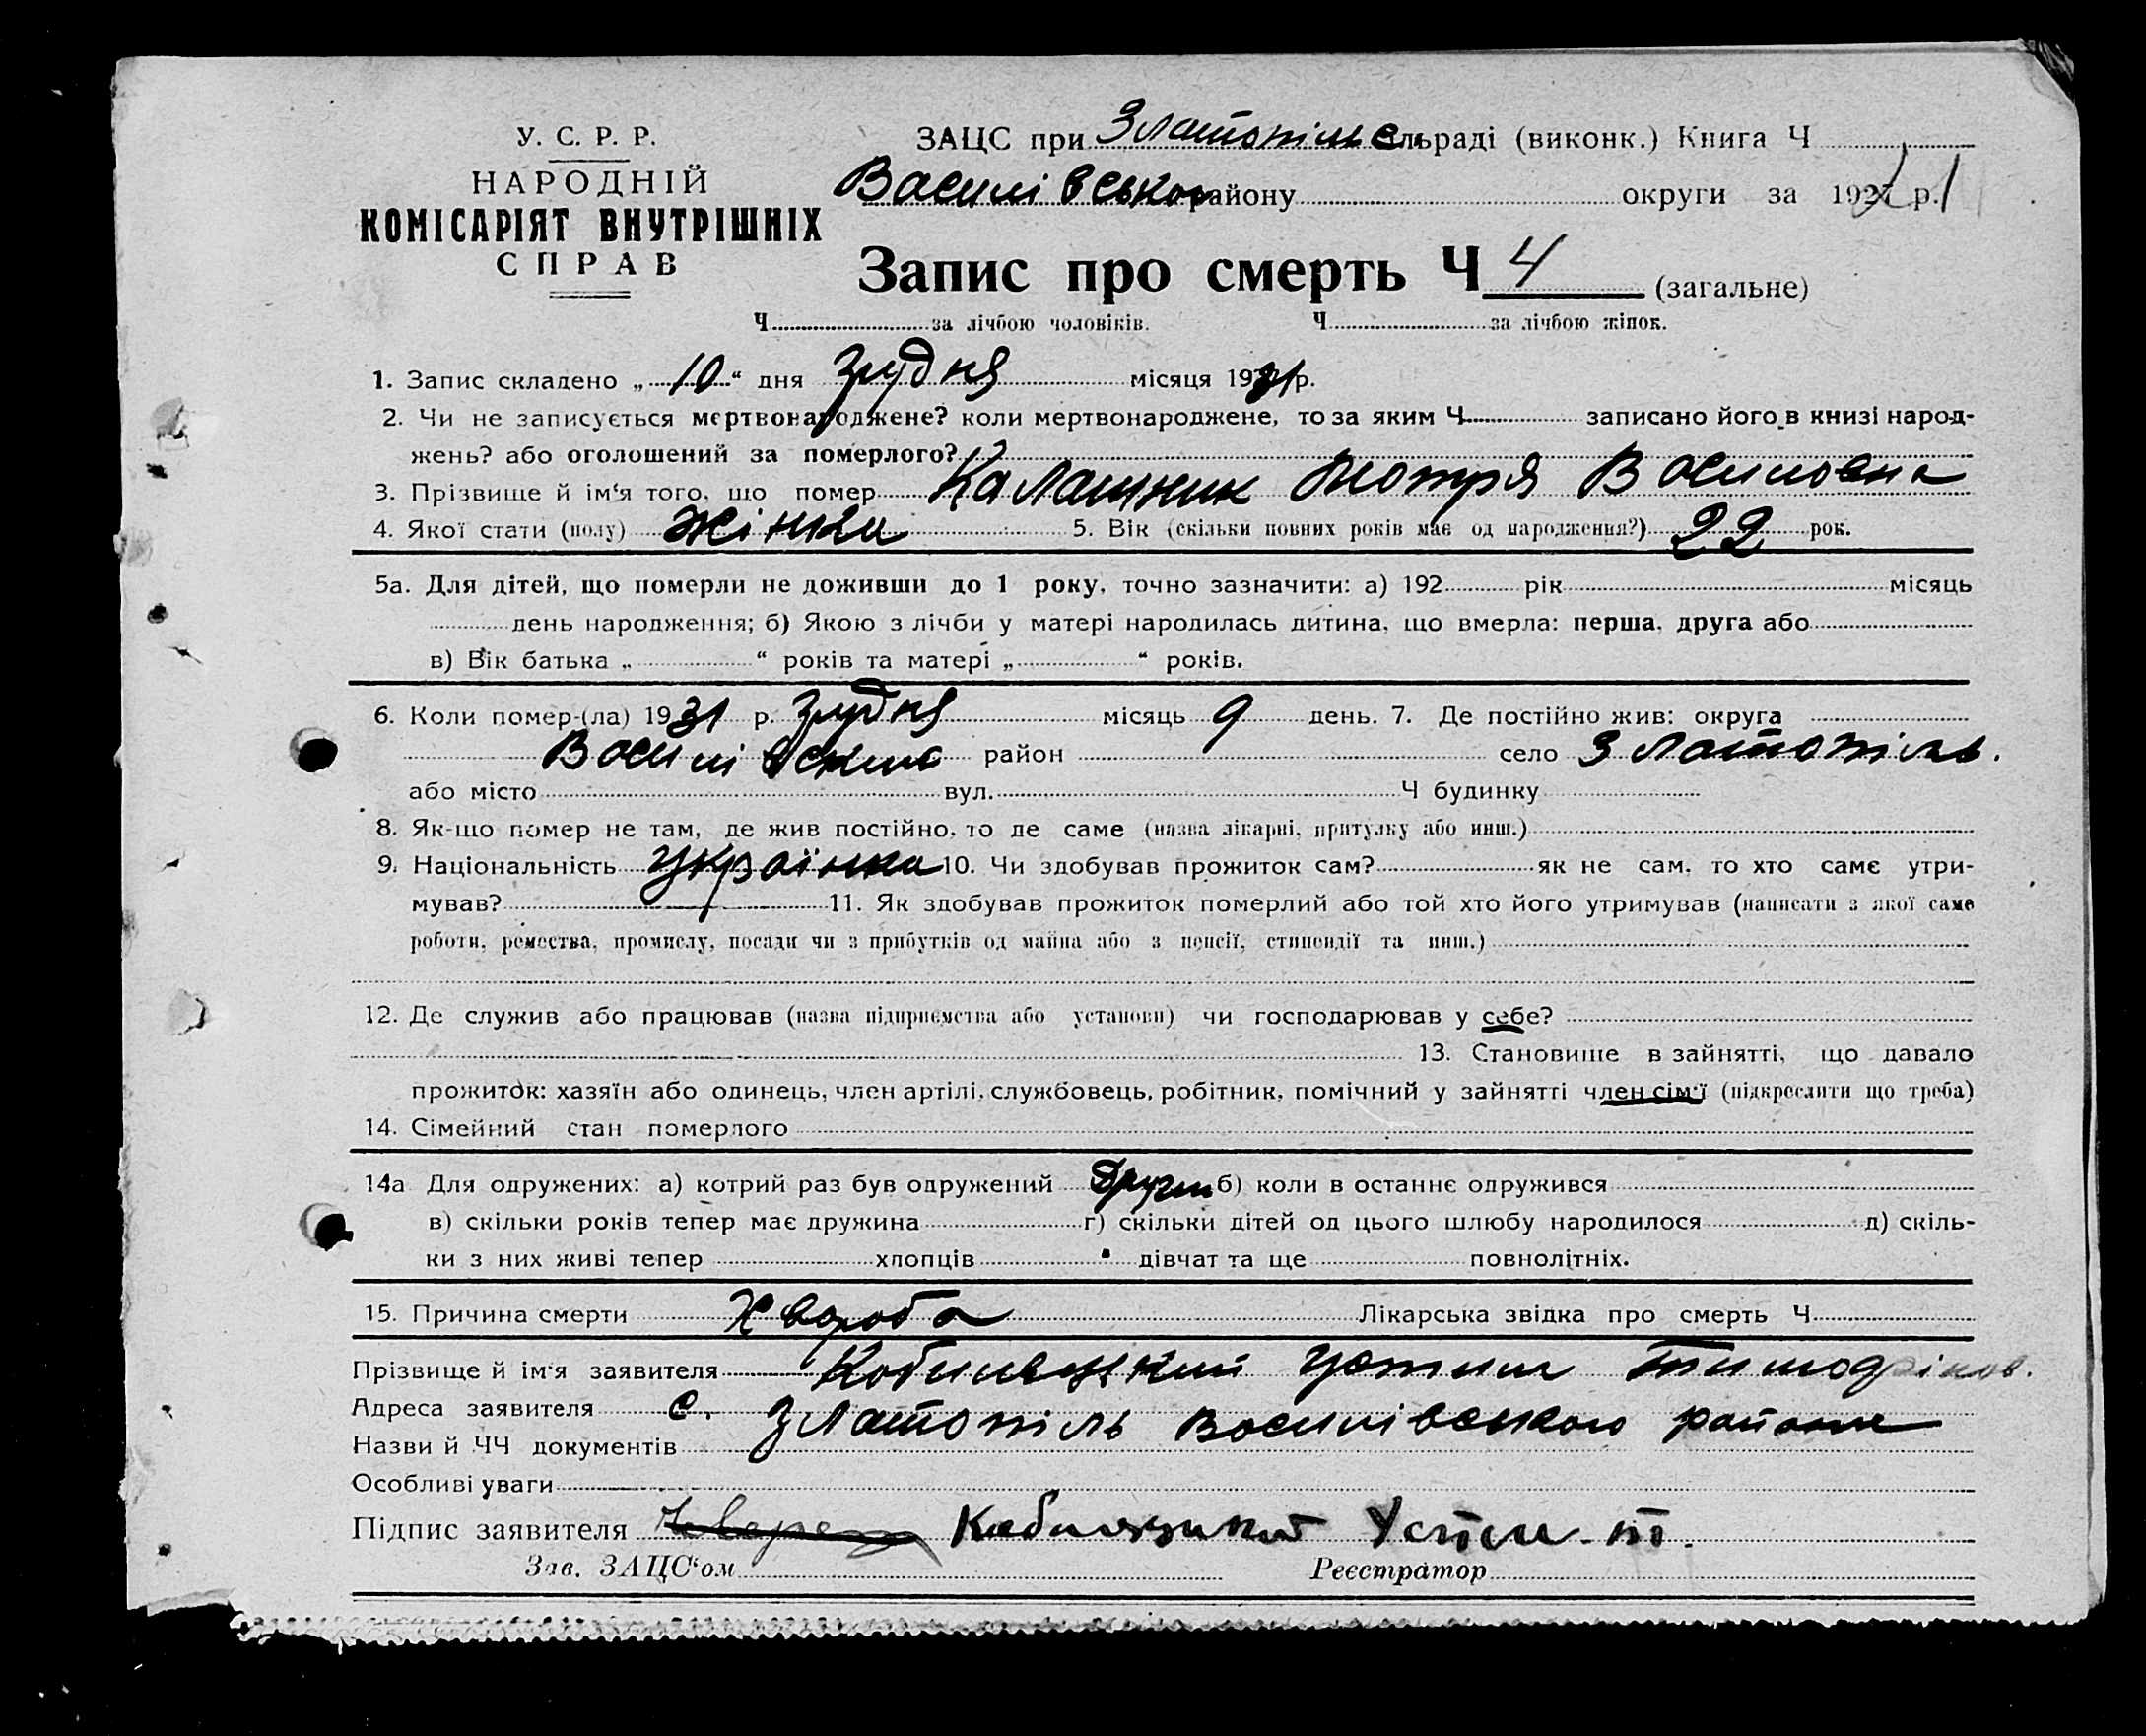 У. С. Р. Р.
НАРОДНІЙ
КОМІСАРІЯТ ВНУТРІШНІХ
СПРАВ
ЗАЦС при Златопіль сільраді (виконк.) Книга Ч
Василівсько району округи за 192 р. 1
Запис про смерть Ч 4 (загальне)
Ч за лічбою чоловіків. Ч за лічбою жінок.
1. Запис складено „ 10 “ дня Грудня місяця 1931 р.
2. Чи не записується мертвонароджене? коли мертвонароджене, то за яким Ч записано його в книзі народ-
жень? або оголошений за померлого?
3. Прізвище й ім‘я того, що помер Калашник Мотря Василовна
4. Якої стати (полу) жінка 5. Вік (скільки повних років має од народження?) 22 рок.
5а. Для дітей, що померли не доживши до 1 року, точно зазначити: а) 192 рік місяць
день народження; б) Якою з лічби у матері народилась дитина, що вмерла: перша, друга або
в) Вік батька „ “ років та матері „ “ років.
6. Коли помер-(ла) 1931 р. Грудня місяць 9 день. 7. Де постійно жив: округа
Василівського район село Златопіль.
або місто вул. Ч будинку
8. Як-що помер не там, де жив постійно, то де саме (назва лікарні, притулку або инш.)
9. Національність Українка 10. Чи здобував прожиток сам? як не сам, то хто саме утри-
мував? 11. Як здобував прожиток померлий або той хто його утримував (написати з якої саме
роботи, ремества, промислу, посади чи з прибутків од майна або з пенсії, стипендії та инш.)
12. Де служив або працював (назва підприємства або установи) чи господарював у себе?
13. Становище в зайнятті, що давало
прожиток: хазяїн або одинець, член артілі, службовець, робітник, помічний у зайнятті член сім‘ї (підкреслити що треба)
14. Сімейний стан померлого
14а Для одружених: а) котрий раз був одружений б) коли в останнє одружився
в) скільки років тепер має дружина г) скільки дітей од цього шлюбу народилося д) скіль-
ки з них живі тепер хлопців дівчат та ще повнолітніх.
15. Причина смерти Хвороба Лікарська звідка про смерть Ч
Прізвище й ім‘я заявителя Кобиляцкий Устим Тимофіков.
Адреса заявителя с. Златопіль Василівського району
Назви й ЧЧ документів
Особливі уваги
Підпис заявителя Кабиляцкий Устим. т.
Зав. ЗАЦС‘ом Реєстратор